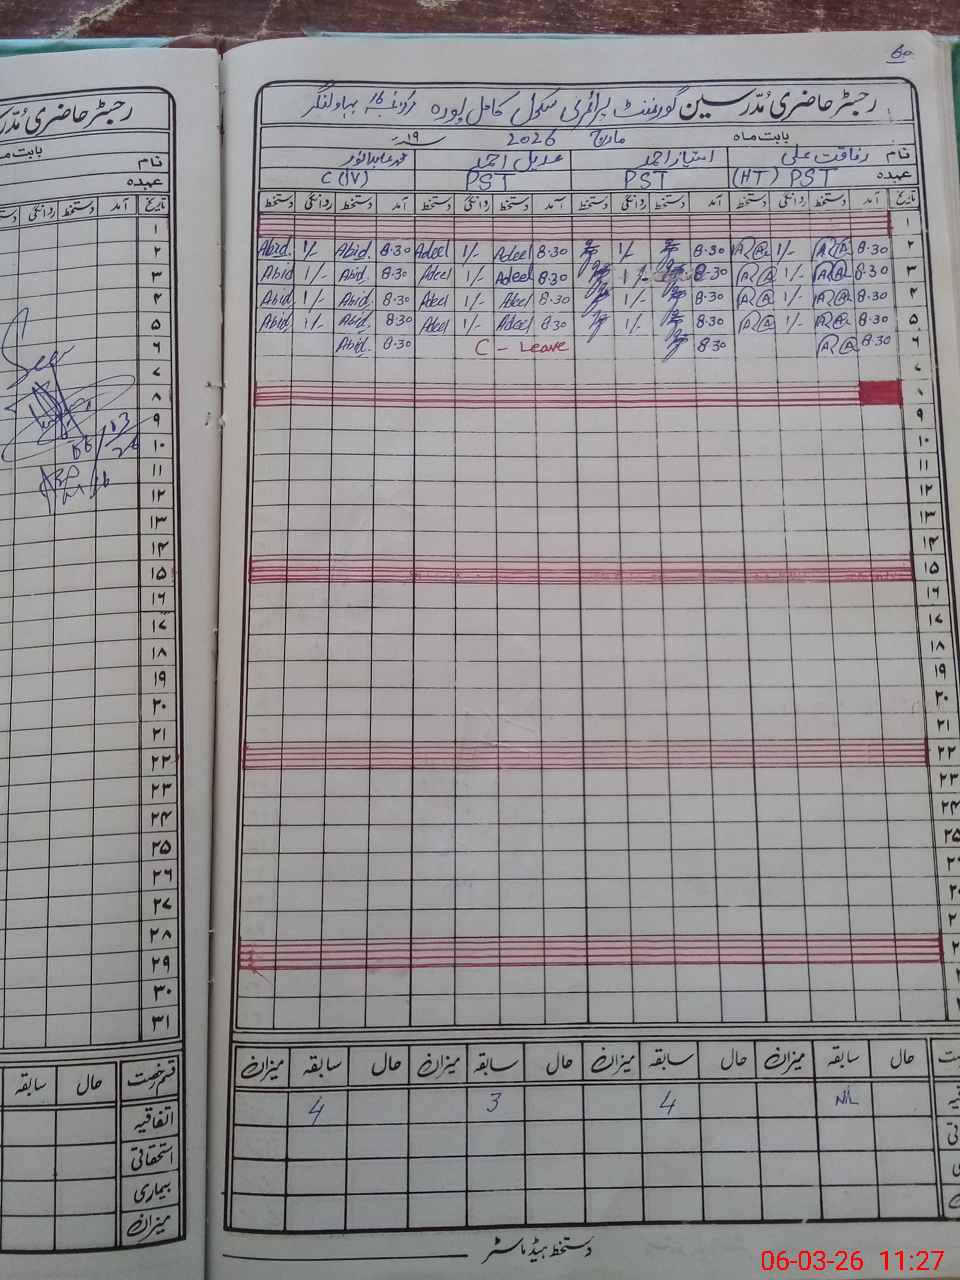 60
رجسٹر حاضری مُدّرسین گورنمنٹ پرائمری سکول کامل پورہ مرکز بہاولنگر
بابت ماہ مارچ 2026 ۱۹ء
نام رفاقت علی امتیاز احمد عدیل احمد محمد عابد انور
عہدہ (HT) PST PST PST C(IV)
تاریخ آمد دستخط روانگی دستخط آمد دستخط روانگی دستخط آمد دستخط روانگی دستخط آمد دستخط روانگی دستخط
۱
۲ 8.30 1/- 8.30 1/- 8.30 Adeel 1/- Adeel 8.30 Abid. 1/- Abid.
۳ 8.30 1/- 8.30 1/- 8.30 Adeel 1/- Adeel 8.30 Abid. 1/- Abid
۴ 8.30 1/- 8.30 1/- 8.30 Adeel 1/- Adeel 8.30 Abid. 1/- Abid
۵ 8.30 1/- 8.30 1/- 8.30 Adeel 1/- Adeel 8.30 Abid. 1/- Abid
۶ 8.30 8.30 C - Leave 8.30 Abid.
۷
۸
۹
۱۰
۱۱
۱۲
۱۳
۱۴
۱۵
۱۶
۱۷
۱۸
۱۹
۲۰
۲۱
۲۲
۲۳
۲۴
۲۵
حال سابقہ میزان حال سابقہ میزان حال سابقہ میزان حال سابقہ میزان
NIL 4 3 4
دستخط ہیڈ ماسٹر
رجسٹر حاضری مُدّر
بابت ما
نام
عہدہ
تاریخ آمد دستخط روانگی
۱
۲
۳
۴
۵
۶
۷
۸
۹
۱۰
۱۱
۱۲
۱۳
۱۴
۱۵
۱۶
۱۷
۱۸
۱۹
۲۰
۲۱
۲۲
۲۳
۲۴
۲۵
۲۶
۲۷
۲۸
۲۹
۳۰
۳۱
Seen
06/03/26
قسم رخصت حال سابقہ
اتفاقیہ
استحقاقی
بیماری
میزان
06-03-26 11:27